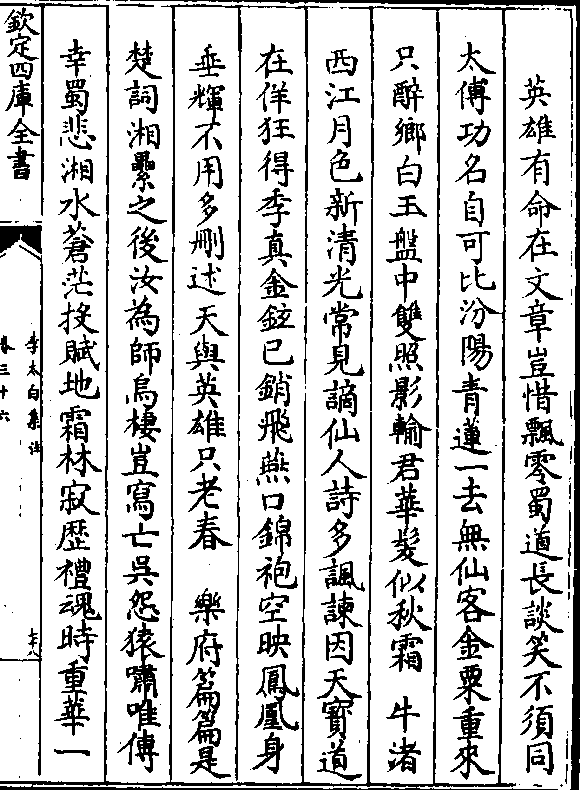 英雄有命在文章豈惜飄零蜀道長談笑不須同
太傅功名自可比汾陽青蓮一去無仙客金粟重來
只醉鄉白玉盤中雙照影輸君華髮似秋霜　牛渚
西江月色新清光常見謫仙人詩多諷諫因天寶道
在佯狂得季真金鉉已銷飛燕口錦袍空映鳳凰身
垂輝不用多刪述天與英雄只老春　樂府篇篇是
楚詞湘纍之後汝為師烏棲豈寫亡吳怨猿嘯唯傳
幸蜀悲湘水蒼茫投賦地霜林寂歷禮魂時重華一
欽定四庫全書
李太白集注
卷三十六